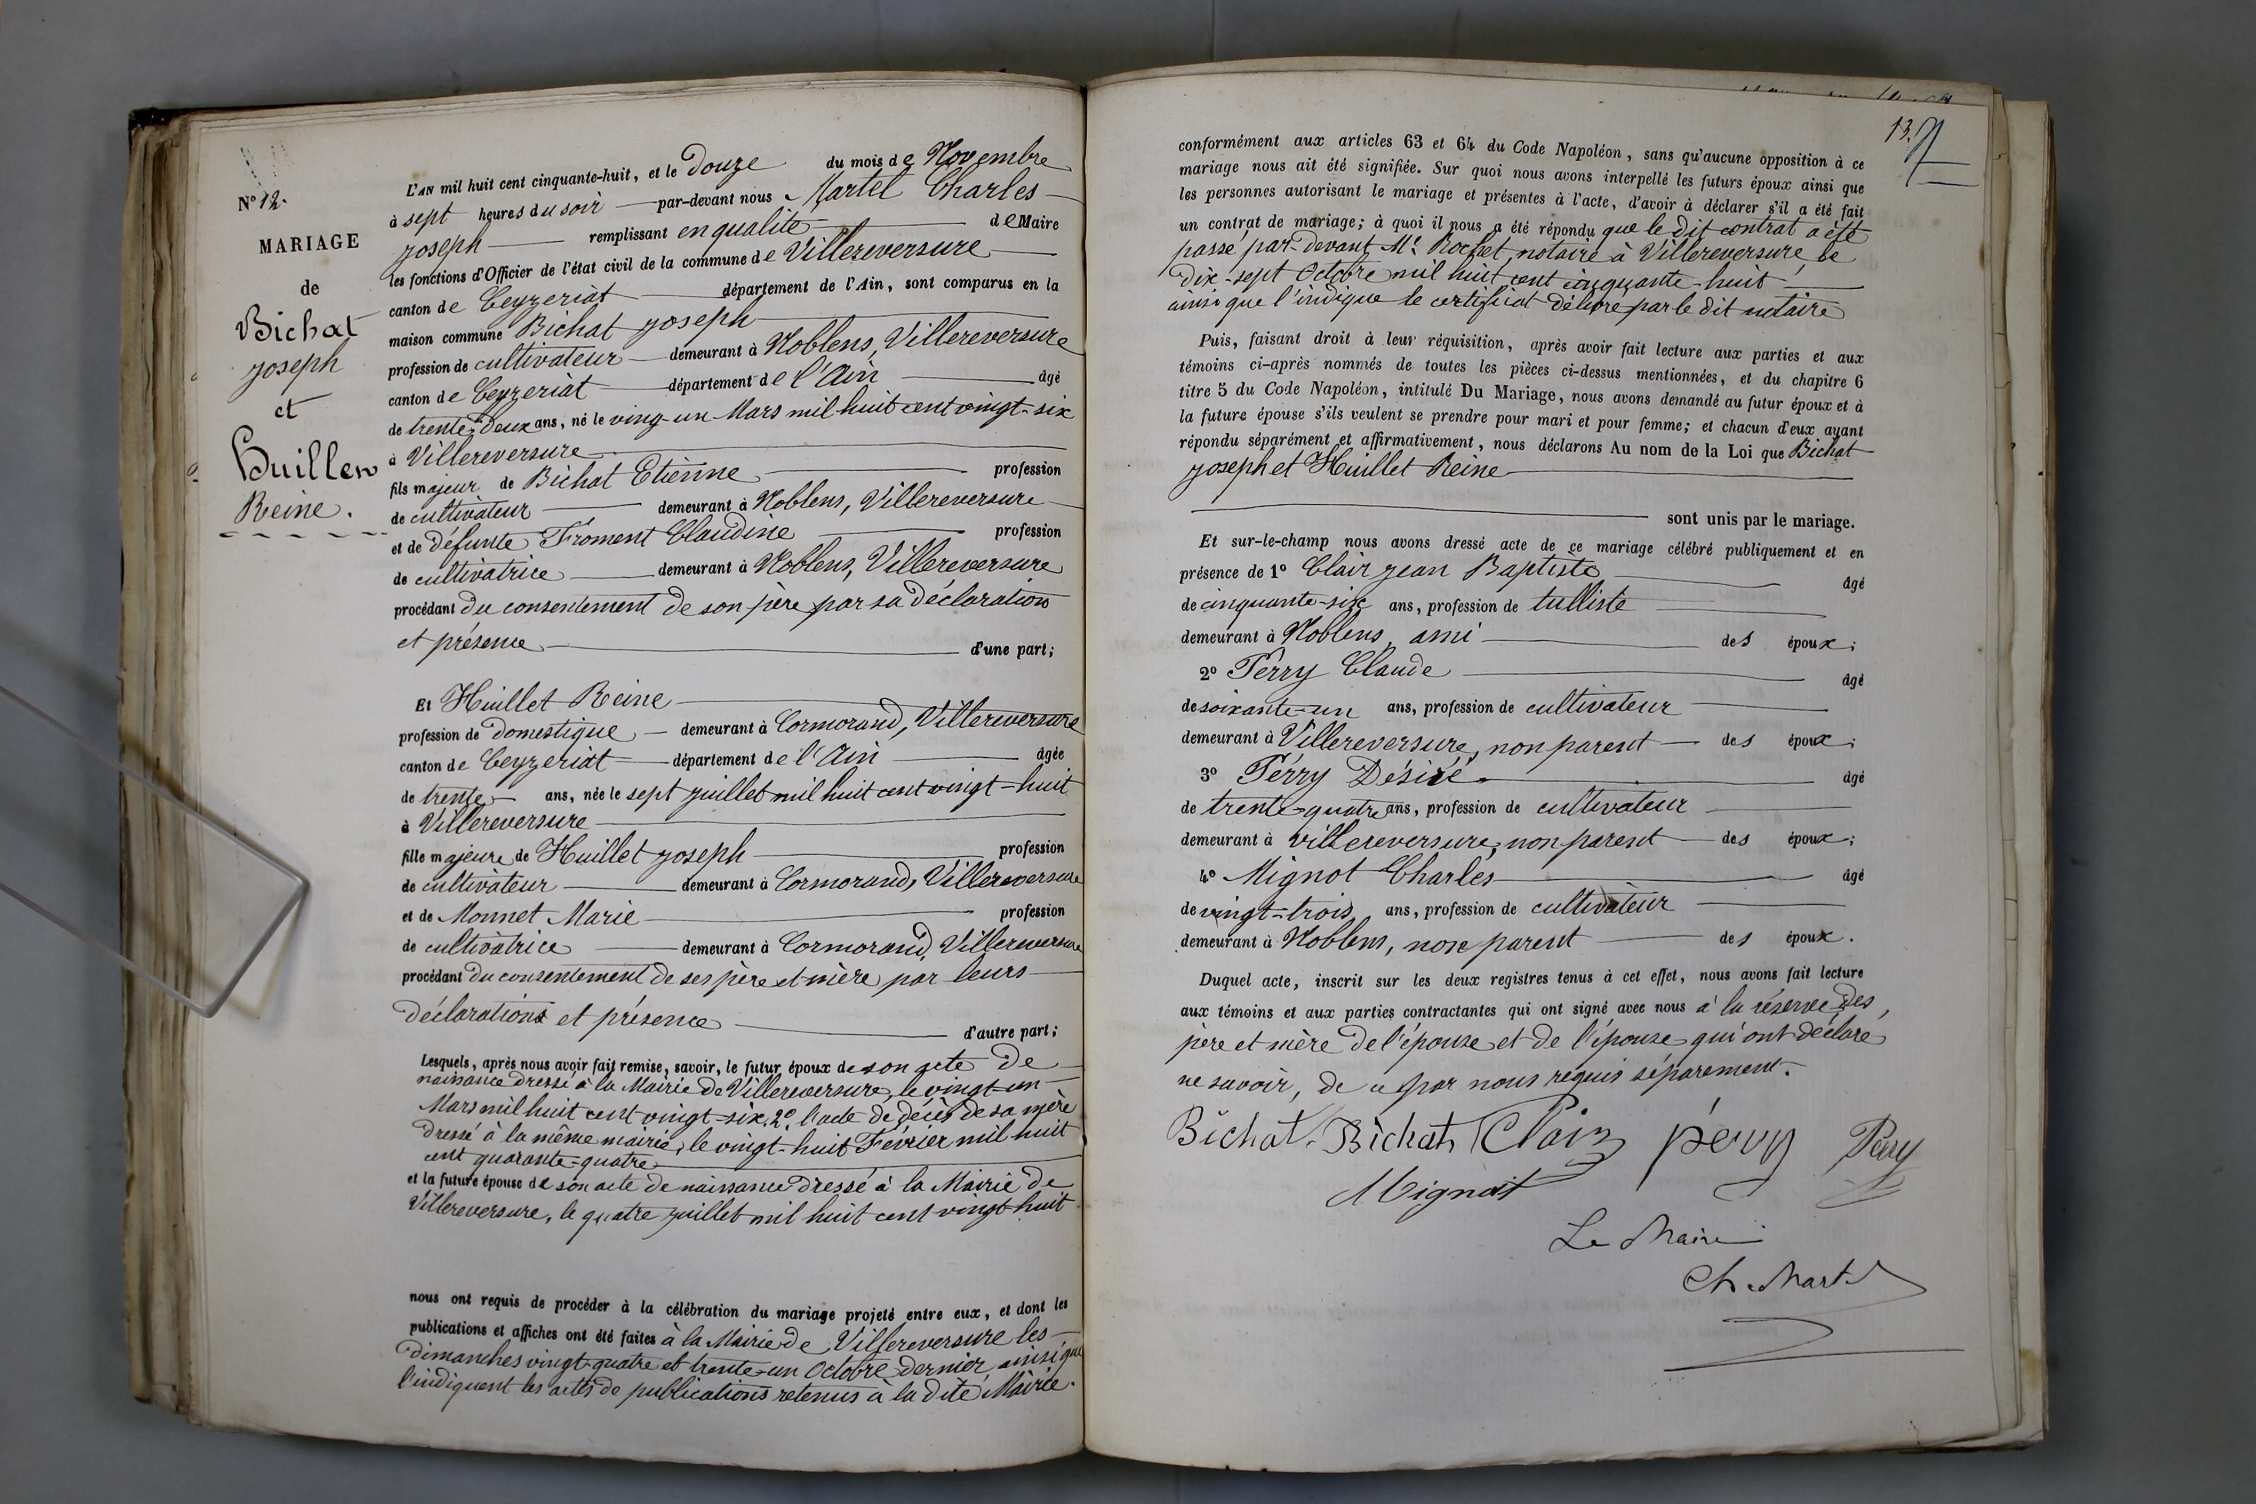 N° 12.
MARIAGE
de
Bichat
Joseph
et
Huillet
Reine.
L'AN mil huit cent cinquante-huit, et le Douze du mois de Novembre
à sept heures du soir par-devant nous Martel Charles
Joseph remplissant en qualité de Maire
les fonctions d'Officier de l'état civil de la commune de Villereversure
canton de Ceyzeriat département de l'Ain, sont comparus en la
maison commune Bichat Joseph
profession de cultivateur demeurant à Noblens, Villereversure
canton de Ceyzeriat département de l'Ain âgé
de trente-deux ans, né le ving-un Mars mil huit cent vingt-six
à Villereversure
fils majeur de Bichat Etienne profession
de cultivateur demeurant à Noblens, Villereversure
et de défunte Froment Claudine profession
de cultivatrice demeurant à Noblens, Villereversure
procédant du consentement de son père par sa déclaration
et présence d'une part;
Et Huillet Reine
profession de domestique demeurant à Cormorand, Villereversure
canton de Ceyzeriat département de l'Ain âgée
de trente ans, née le sept juillet mil huit cent vingt-huit
à Villereversure
fille majeure de Huillet Joseph profession
de cultivateur demeurant à Cormorand, Villereversure
et de Monnet Marie profession
de cultivatrice demeurant à Cormorand, Villereversure
procédant du consentement de ses père et mère par leurs
déclarations et présence d'autre part;
Lesquels, après nous avoir fait remise, savoir, le futur époux de son acte De
naissance dressé à la Mairie de Villereversure, le vingt-un
Mars mil huit cent vingt-six, 2° l'acte de décès de sa mère
dressé à la même mairie, le vingt-huit Février mil huit
cent quarante-quatre
et la future épouse de son acte de naissance dressé à la Mairie de
Villereversure, le quatre juillet mil huit cent vingt-huit
nous ont requis de procéder à la célébration du mariage projeté entre eux, et dont les
publications et affiches ont été faites à la Mairie de Villereversure les
dimanches vingt-quatre et trente-un Octobre dernier, ainsi que
l'indiquent les actes de publications retenus à la dite Mairie.
13.
conformément aux articles 63 et 64 du Code Napoléon, sans qu'aucune opposition à ce
mariage nous ait été signifiée. Sur quoi nous avons interpellé les futurs époux ainsi que
les personnes autorisant le mariage et présentes à l'acte, d'avoir à déclarer s'il a été fait
un contrat de mariage; à quoi il nous a été répondu que le dit contrat a été
passé par-devant Me Rochet, notaire à Villereversure, le
Dix-sept Octobre mil huit cent cinquante-huit
ainsi que l'indique le certificat délivré par le dit notaire
Puis, faisant droit à leur réquisition, après avoir fait lecture aux parties et aux
témoins ci-après nommés de toutes les pièces ci-dessus mentionnées, et du chapitre 6
titre 5 du Code Napoléon, intitulé Du Mariage, nous avons demandé au futur époux et à
la future épouse s'ils veulent se prendre pour mari et pour femme; et chacun d'eux ayant
répondu séparément et affirmativement, nous déclarons Au nom de la Loi que Bichat
Joseph et Huillet Reine
sont unis par le mariage.
Et sur-le-champ nous avons dressé acte de ce mariage célébré publiquement et en
présence de 1° Clair Jean Baptiste âgé
de cinquante-six ans, profession de tulliste
demeurant à Noblens, ami des époux;
2° Perry Claude âgé
de soixante-un ans, profession de cultivateur
demeurant à Villereversure, non parent des époux;
3° Perry Désiré âgé
de trente-quatre ans, profession de cultivateur
demeurant à Villereversure, non parent des époux;
4° Mignot Charles âgé
de vingt-trois ans, profession de cultivateur
demeurant à Noblens, non parent des époux.
Duquel acte, inscrit sur les deux registres tenus à cet effet, nous avons fait lecture
aux témoins et aux parties contractantes qui ont signé avec nous à la réserve des
père et mère de l'épouse et de l'épouse qui ont déclaré
ne savoir, de ce par nous requis séparement.
Bichat. Bichat Clair pérry Pery
Mignot
Le Maire
Ch. Martel